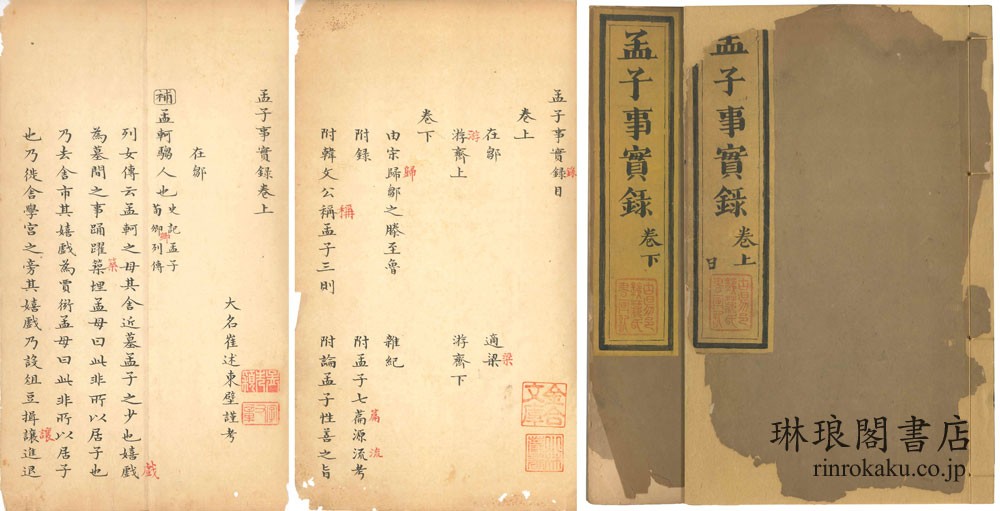 孟子事實錄
卷上
孟子事實錄
卷下
琳琅閣書店
rinrokaku.co.jp
孟子事實錄目
錄
卷上
在鄒 適梁
梁
游齊上 游齊下
游
卷下
由宋歸鄒之滕至魯 雜紀
歸
附錄 附孟子七篇源流考
篇 流
附韓文公稱孟子三則 附論孟子性善之旨
稱
孟子事實錄卷上
大名崔述東壁謹考
在鄒
補孟軻騶人也
史記孟子
荀卿列傳
卿
列女傳云孟軻之母其舍近墓孟子之少也嬉戲
戲
為墓間之事踊躍築埋孟母曰此非所以居子也
築
乃去舍市其嬉戲為賈衒孟母曰此非所以居子
也乃徙舍學宮之旁其嬉戲乃設俎豆揖讓進退
讓